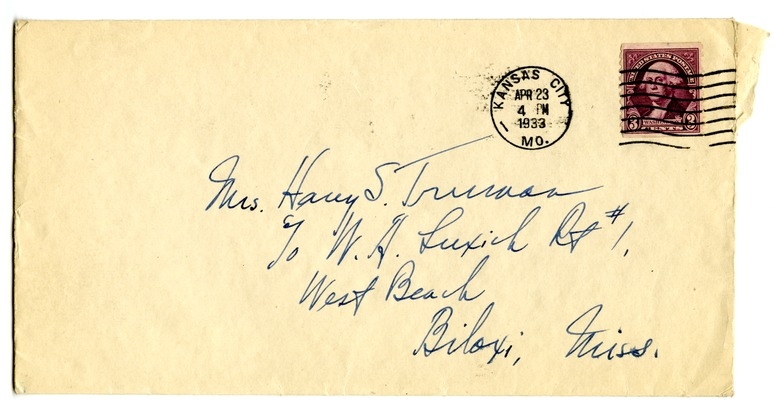 KANSAS CITY
APR 23
4 PM
1933
MO.
UNITED STATES POSTAGE
3 3
Mrs. Harry S. Truman
℅ W. H. Luxich Rt #1,
West Beach
Biloxi, Miss.